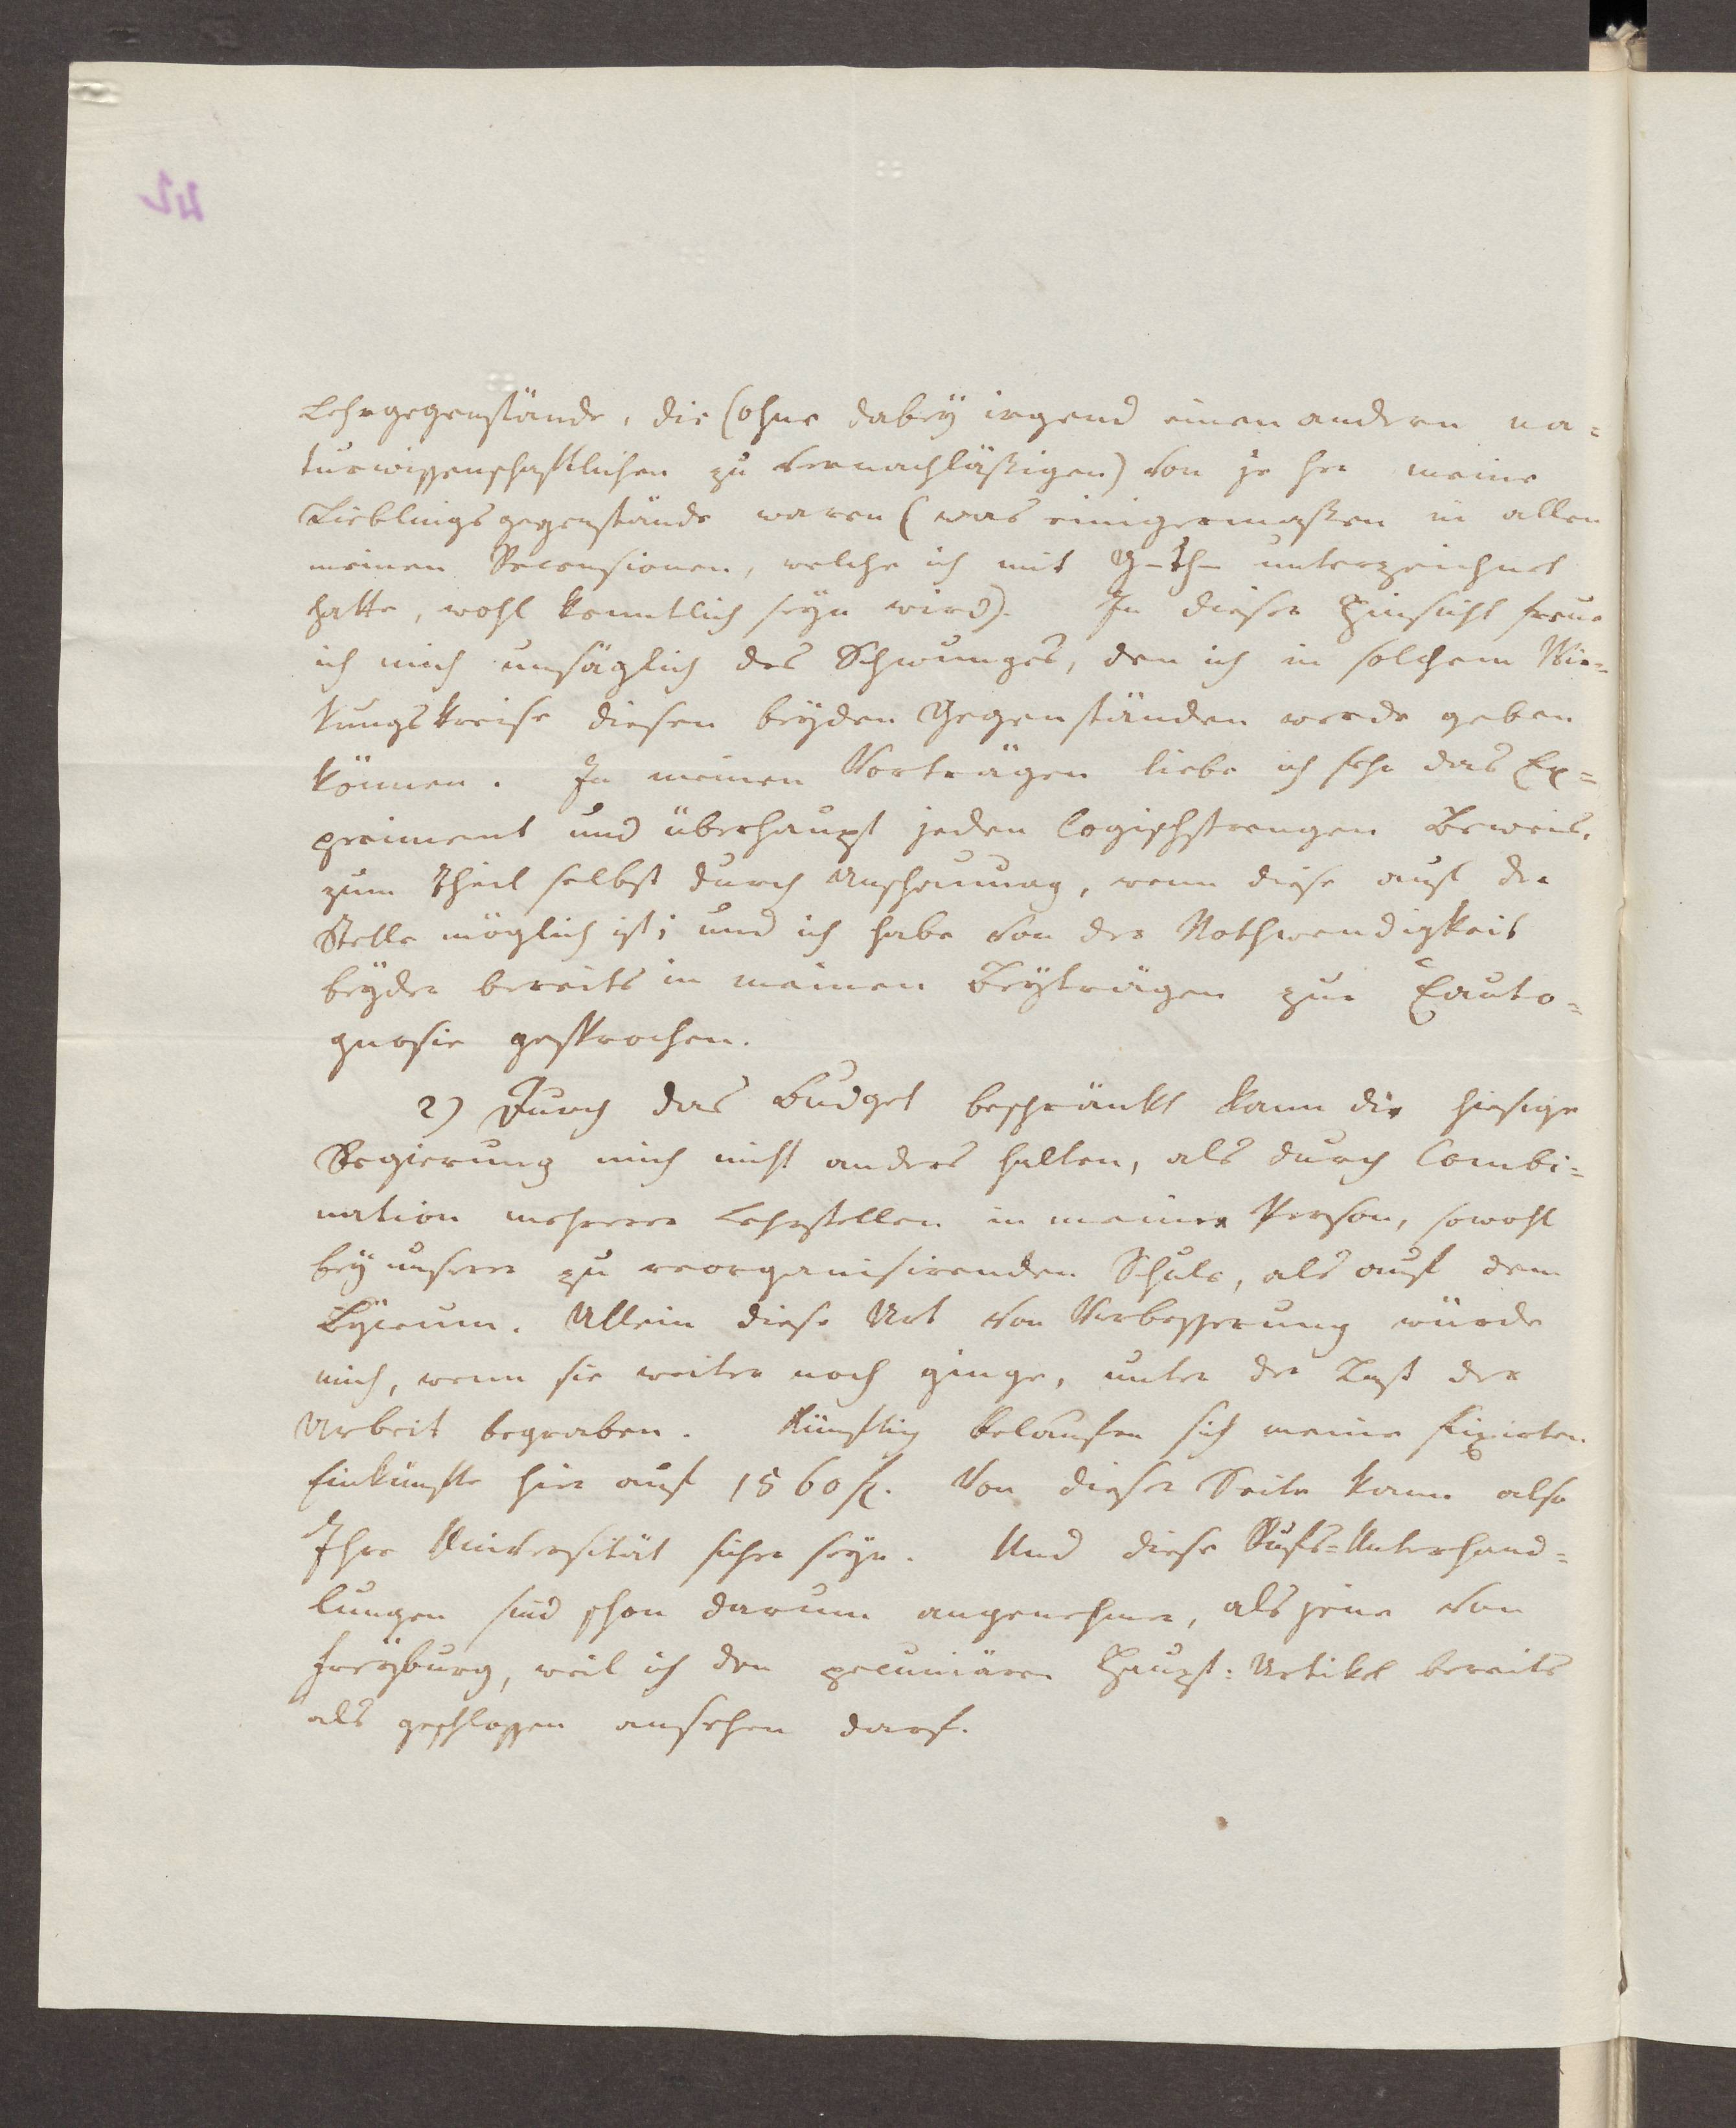 Lehrgegenstände, die (ohne dabey irgend einen andern na=
turwissenschaftlichen zu vernachläßigen) von je her meine
Lieblingsgegenstände waren (was einigermaßen in allen
meinen Recensionen, welche ich mit G-th- unterzeichnet
hatte, wohl kenntlich seyn wird). In dieser Hinsicht freue
ich mich unsäglich des Schwunges, den ich in solchem Wir=
kungskreise diesen beyden Gegenständen werde geben
können. In meinen Vorträgen liebe ich sehr das Ex=
periment und überhaupt jeden logischstrengen Beweis,
zum Theil selbst durch Anschauung, wenn diese auf der
Stelle möglich ist; und ich habe von der Nothwendigkeit
beyder bereits in meinen Beyträgen zur Eauto=
gnosie gesprochen.
2) Durch das Budget beschränkt kann die hiesige
Regierung mich nicht anders halten, als durch Combi=
nation mehrerer Lehrstellen in meiner Person, sowohl
bey unserer zu reorganisirenden Schule, als auf dem
Lyceum. Allein diese Art von Verbesserung würde
mich, wenn sie weiter noch ginge, unter der Last der
Arbeit begraben. Künftig belaufen sich meine fixirten
Einkünfte hier auf 1560 fl. Von dieser Seite kann also
Ihre Universität sicher seyn. Und diese Rufs=Unterhand=
lungen sind schon darum angenehmer, als jene von
Freyburg, weil ich den pecuniären Haupt=Artikel bereits
als geschlossen ansehen darf.